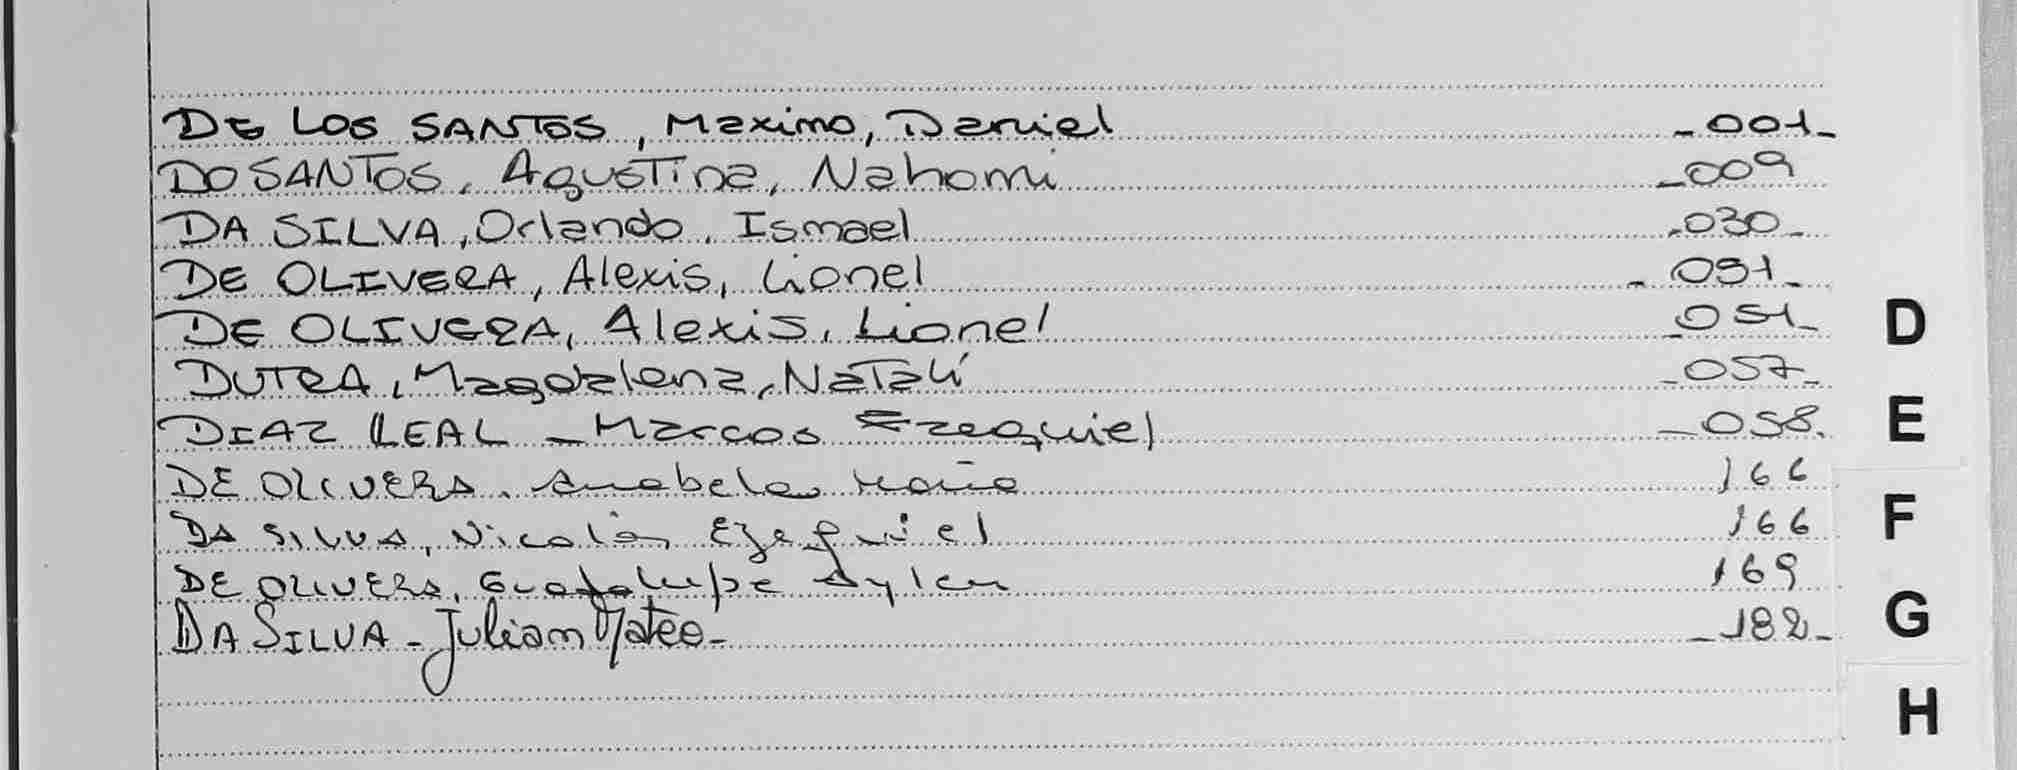 DE LOS SANTOS, Maximo, Daniel _001_
DO SANTOS, Agustina, Nahomi _009
DA SILVA, Orlando, Ismael 030_
DE OLIVERA, Alexis, Lionel _ 051_
DE OLIVERA, Alexis, Lionel _051_
D
DUTRA, Magdalena, Natalí _057_
DIAZ LEAL _ Marcos Ezequiel _058.
E
DE OLIVERA, Anabela María 166
DA SILVA, Nicolás Ezequiel 166
F
DE OLIVERA, Guadalupe Aylen 169
DA SILVA - Julian Mateo - _182_
G
H